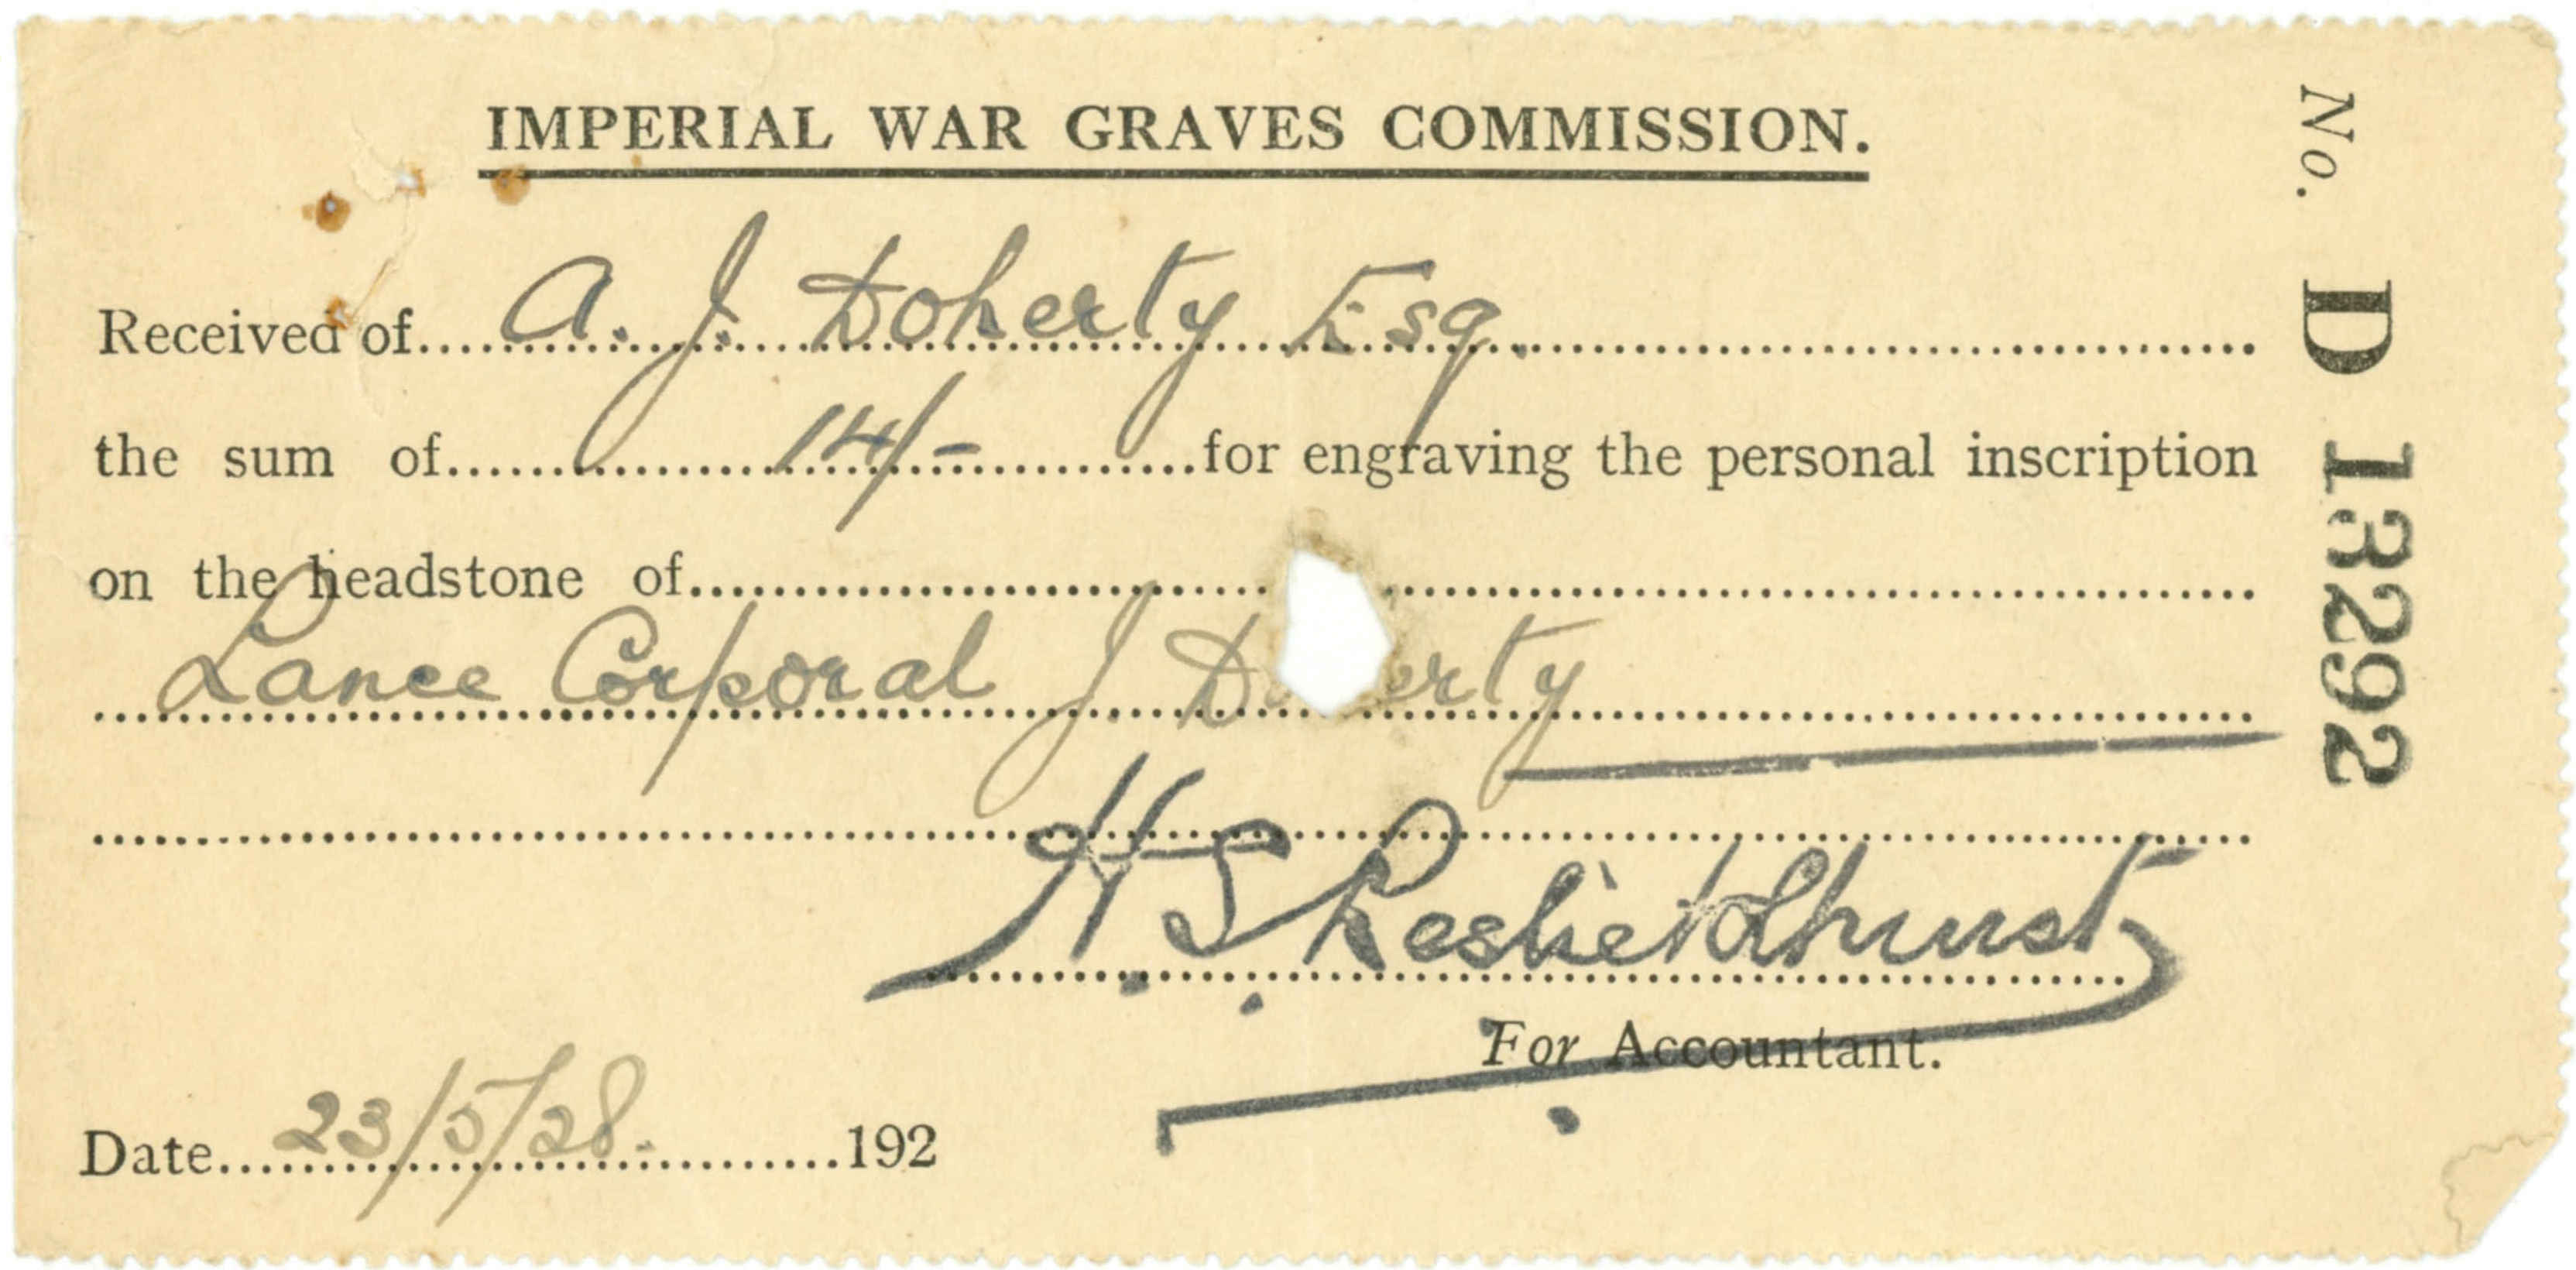 IMPERIAL WAR GRAVES COMMISSION.
No. D 13292
Received of A. J. Doherty Esq.
the sum of 14/- for engraving the personal inscription
on the headstone of
Lance Corporal J D erty
H S
For Accountant.
Date 23/5/28. 192